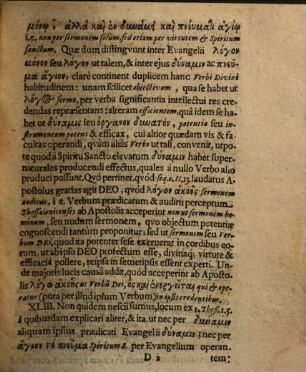 μόνῳ· ἀλλὰ καὶ ἐν δυνάμει καὶ πνεύματι ἁγίῳ
i.e. non per sermonem solum, sed etiam per virtutem & Spiritum
sanctum. Quæ dum distinguunt inter Evangelii λόγον
μόνον seu λόγον ut talem, & inter ejus δύναμιν ac πνεῦ-
μα ἅγιον, clarè continent duplicem hanc Verbi Divini
habitudinem: unam scilicet objectivam, qua se habet ut
λόγος sermo, per verba significantia intellectui res cre-
dendas repræsentans: alteram efficientem, quâ idem se ha-
bet ut δύναμις seu ὄργανον δυνατὸν, potentia seu in-
strumentum potens & efficax, cui altior quædam vis & fa-
cultas operandi, quàm aliàs Verbo ut tali, convenit, ut po-
te quod à Spiritu Sancto elevatum δύναμιν habet super-
naturales producendi effectus, quales à nullo Verbo alio
product possunt. Quò pertinet, quod seq. c. II. 13. laudatus A-
postolus gratias agit DEO, quod λόγον ἀκοῆς sermonem
auditus, i e. Verbum prædicatum & auditu perceptum
Thessalonicenses ab Apostolis acceperint non ut sermonem ho-
minum, seu nudum sermonem, quo objectum potentiæ
cognoscendi tantùm proponitur, sed ut sermonem seu Ver-
bum DEI, quod ita potenter sese exeruerit in cordibus eo-
rum, ut ab ipso DEO profectum esse, divinâq; virtute &
efficaciâ pollere, reipsâ in semetipsis essent experti. Un-
de majoris lucis causâ addit, quòd acceperint ab Aposto-
lis λόγον ἀκοῆς ut Verbū Dei, ὃς καὶ ἐνεργεῖται qui & ope-
ratur (putà per illud ipsum Verbum) in ipsis credentibus.
XLIII. Non quidem nescii sumus, locum ex 1. Thess. I. 5.
à quibusdam explicari aliter, & ita, ut nec per δύναμιν
aliquam ipsius prædicati Evangelii δύναμιν; nec per
ἅγιον τὸ πνεῦμα Spiritum S. per Evangelium operan-
D 2 tem: